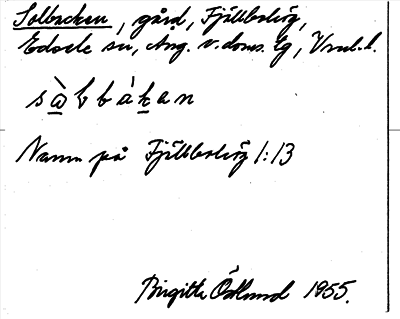 Solbacken, gård, Fjällbolög,
Edsele sn, Ång. v. doms. tg, Vrml. l.
sòbbàkan
Namn på Fjällbolög 1:13
Birgitta Östlund 1955.